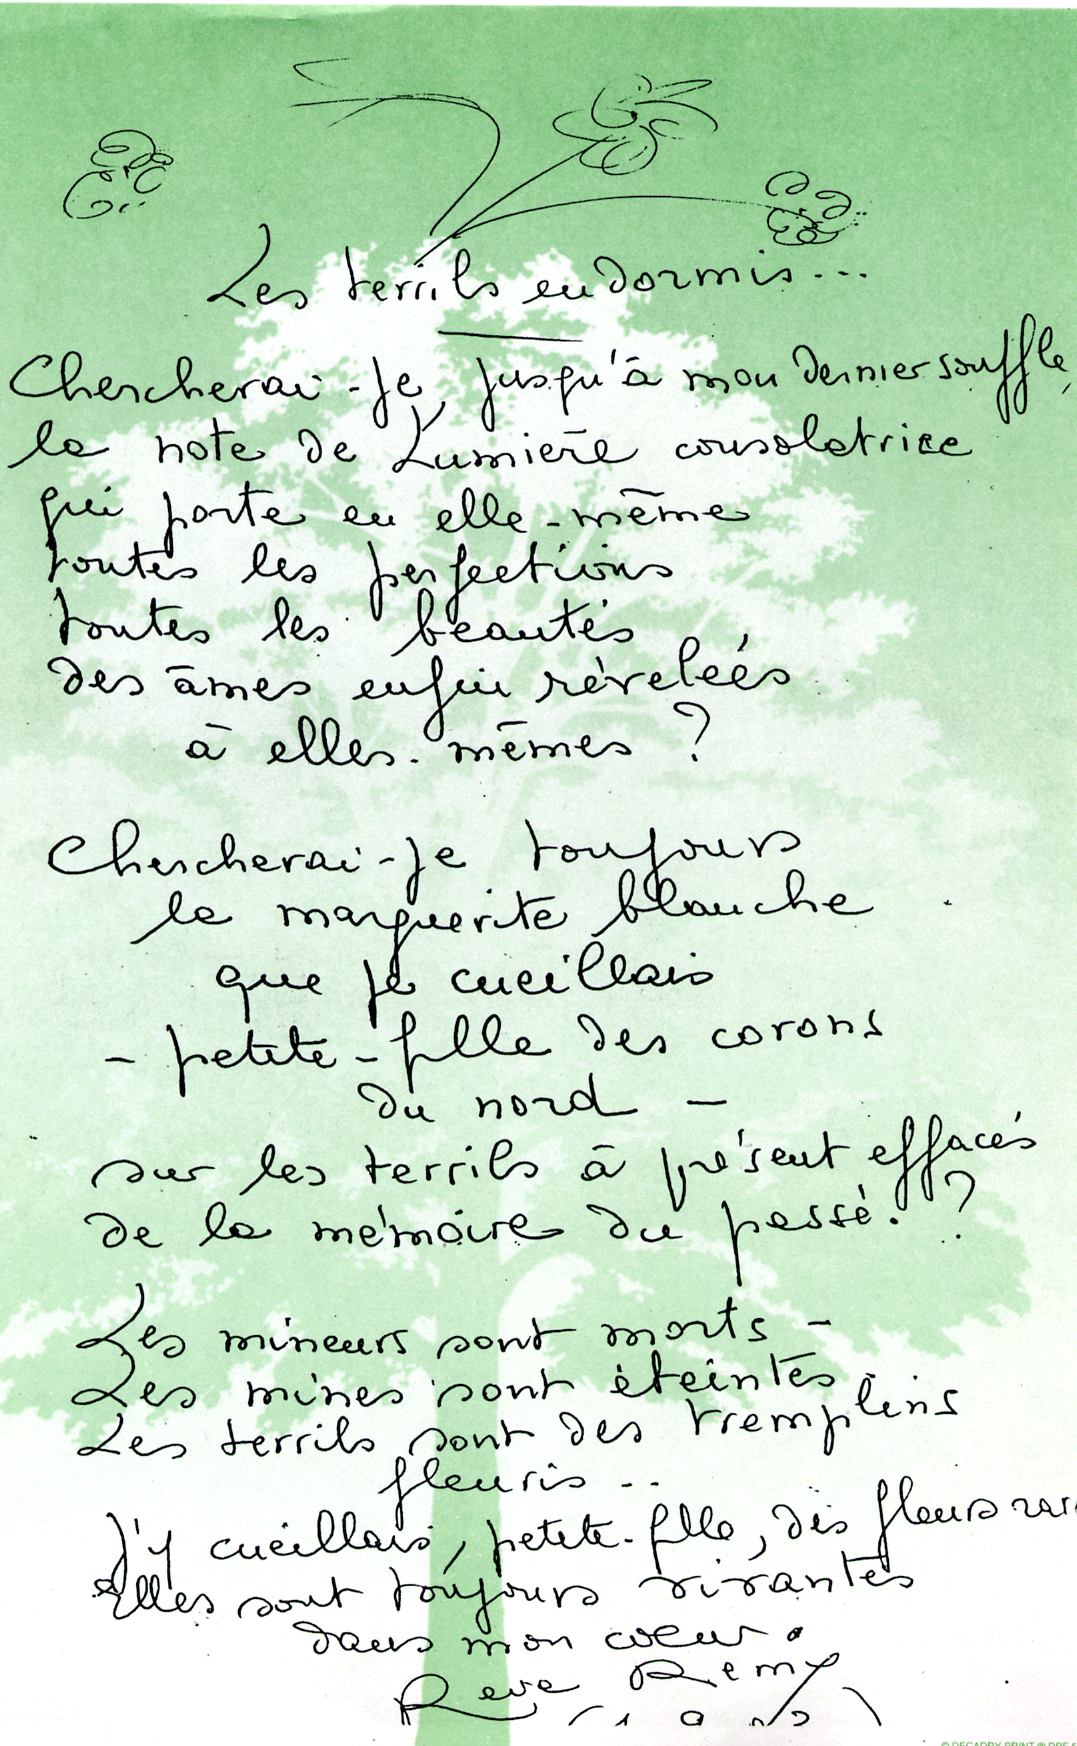 Les terrils endormis...
Chercherai-je, jusqu'à mon dernier souffle,
la note de Lumière consolatrice
qui porte en elle-même
toutes les perfections
toutes les beautés
des âmes enfin révélées
à elles-mêmes ?
Chercherai-je toujours
la marguerite blanche
que je cueillais
- petite-fille des corons
du nord -
sur les terrils à présent effacés
de la mémoire du passé. ?
Les mineurs sont morts -
Les mines sont éteintes
Les terrils sont des tremplins
fleuris ..
J'y cueillais, petite-fille, des fleurs
Elles sont toujours vivantes
dans mon coeur.
Remy
© DECADRY PRINT ®